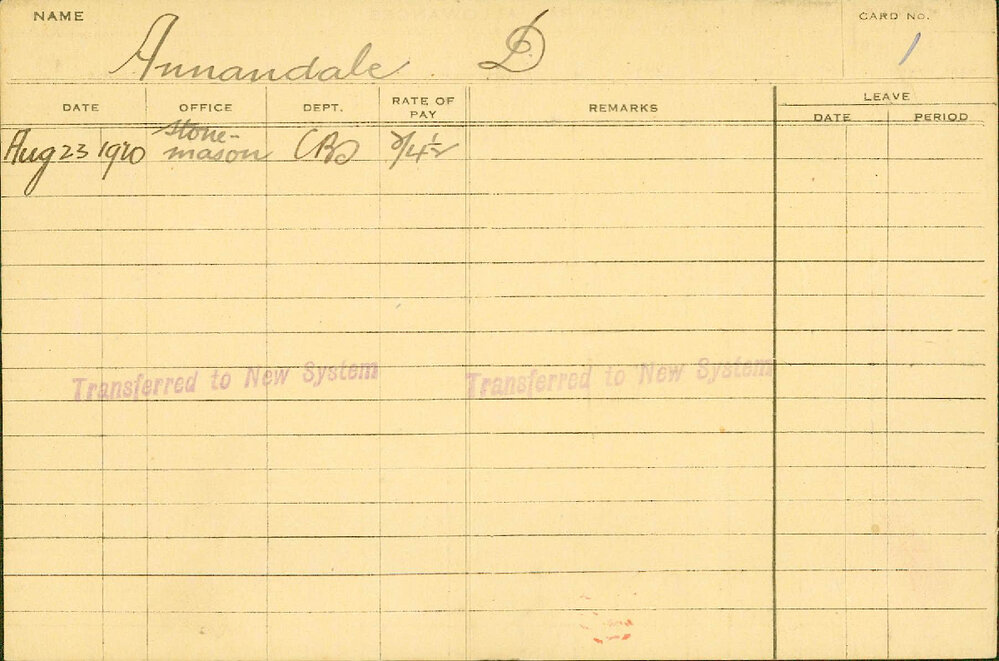 NAME CARD NO.
Annandale D 1
DATE OFFICE DEPT. RATE OF PAY REMARKS LEAVE
DATE PERIOD
Aug 23 1920 stone-
mason 2/4½
Transferred to New System Transferred to New System